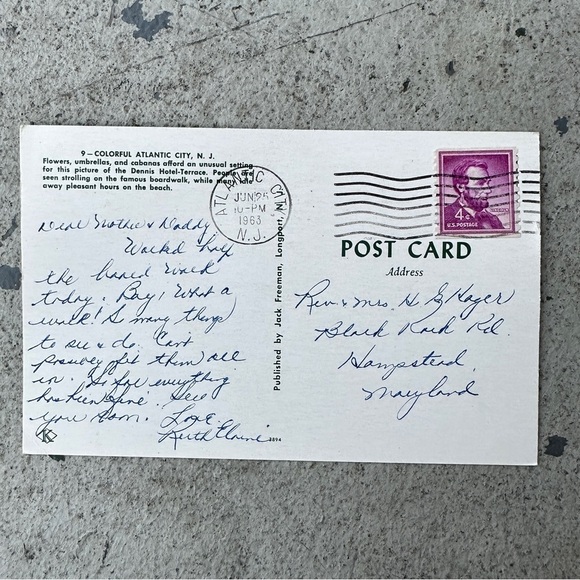 9—COLORFUL ATLANTIC CITY, N. J.
Flowers, umbrellas, and cabanas afford an unusual setting
for this picture of the Dennis Hotel-Terrace. People are
seen strolling on the famous boardwalk, while many
away pleasant hours on the beach.
Dear Mother & Daddy,
Walked half
the board walk
today. Boy, What a
walk! So many things
to see & do. Can't
possibly fit them all
in. So far everything
has been fine. See
you soon. Love
Ruth Elaine
K
Published by Jack Freeman, Longport, N.
3894
ATLANTIC CITY
JUN 25
10-PM
1963
N.J.
4¢
U.S. POSTAGE
POST CARD
Address
Rev. & Mrs. H G Hager
Black Rock Rd.
Hampstead,
Maryland